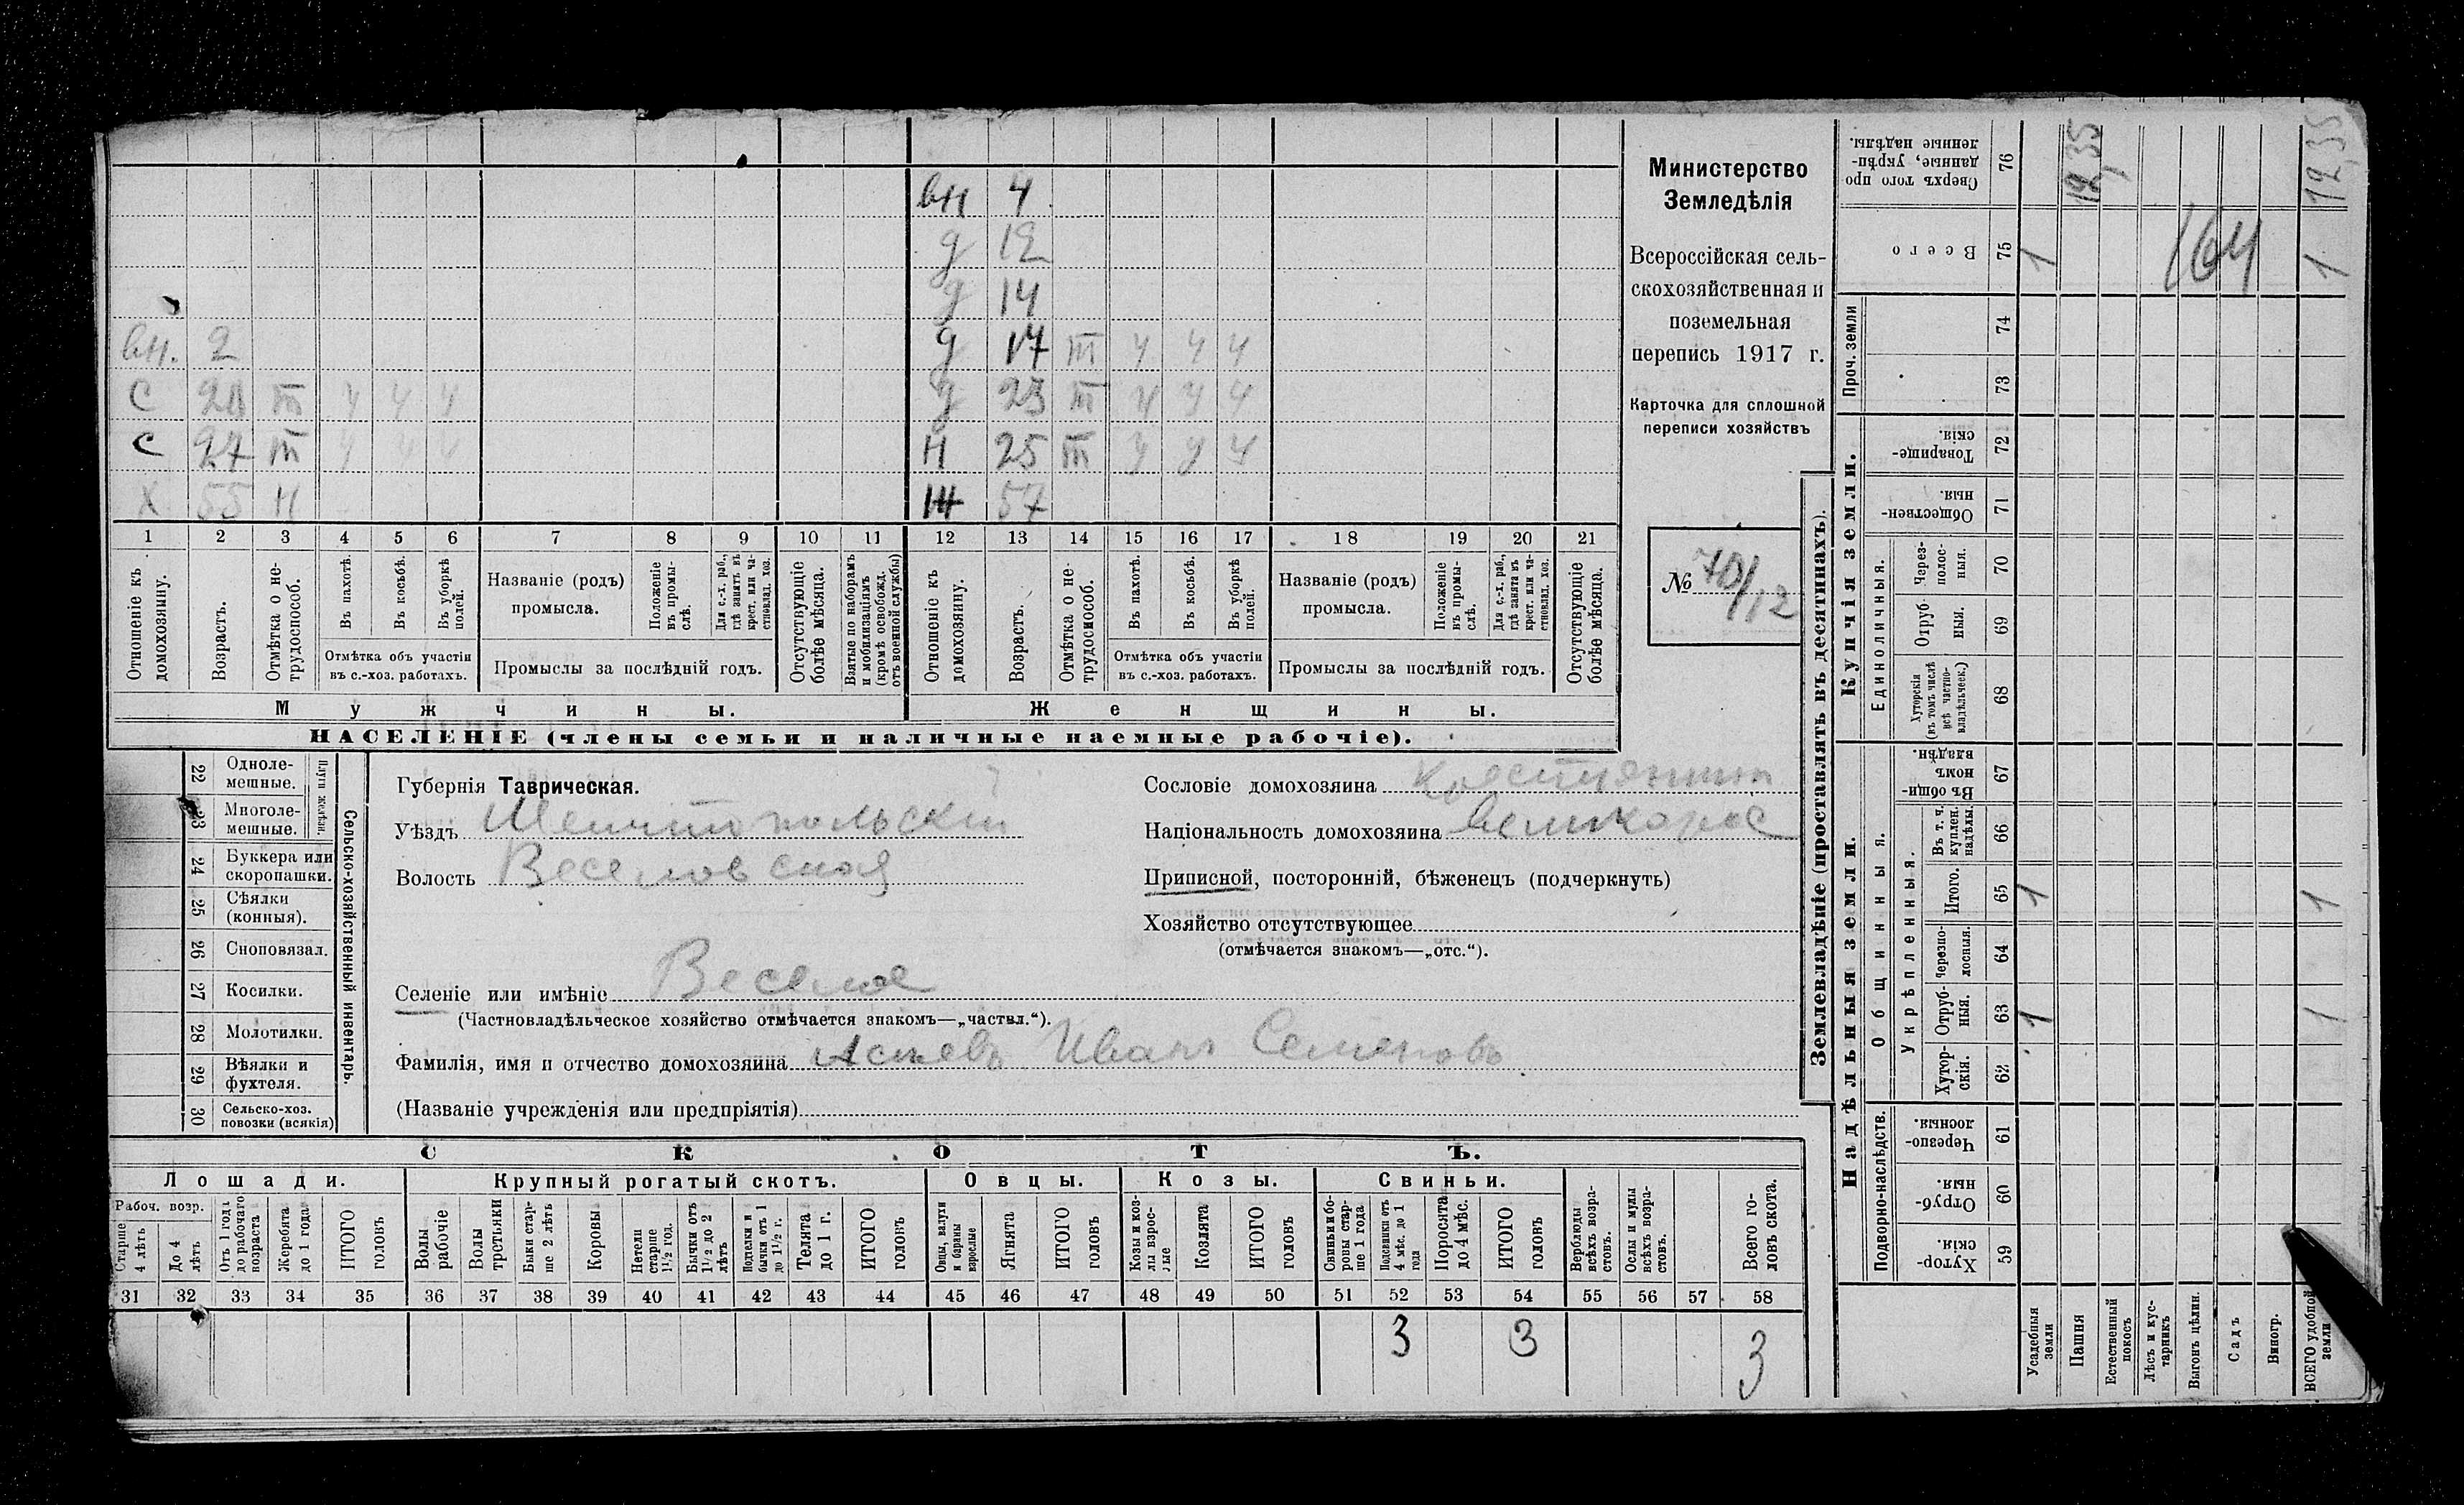 вн 4
д 12
д 14
вн. 2 д 17 III ч ч ч
с III ч ч ч д 23 III ч ч ч
с 27 III ч ч ч н 25 III ч ч ч
х 55 н 57
1 2 3 4 5 6 7 8 9 10 11 12 13 14 15 16 17 18 19 20 21
Отношеніе къ домохозяину.
Возрастъ.
Отмѣтка о не-трудоспособ.
Въ пахотѣ.
Въ косьбѣ.
Въ уборкѣ полей.
Отмѣтка объ участіи
въ с.-хоз. работахъ.
Названіе (родъ)
промысла.
Положеніе въ промы-слѣ.
Для с.-х. раб., гдѣ занятъ въ крест. или ча-стновлад. хоз.
Промыслы за послѣдній годъ.
Отсутствующіе болѣе мѣсяца.
Взятые по наборамъ и мобилизаціямъ (кромѣ освобожд. отъ военной службы)
Отношеніе къ домохозяину.
Возрастъ.
Отмѣтка о не-трудоспособ.
Въ пахотѣ.
Въ косьбѣ.
Въ уборкѣ полей.
Отмѣтка объ участіи
въ с.-хоз. работахъ.
Названіе (родъ)
промысла.
Положеніе въ промы-слѣ.
Для с.-х. раб., гдѣ занята въ крест. или ча-стновлад. хоз.
Промыслы за послѣдній годъ.
Отсутствующіе болѣе мѣсяца.
Мужчины. Женщины.
НАСЕЛЕНІЕ (члены семьи и наличные наемные рабочіе).
Министерство
Земледѣлія
Всероссійская сель-
скохозяйственная и
поземельная
перепись 1917 г.
Карточка для сплошной
переписи хозяйствъ
№ 70/12
22 Одноле-мешные.
23 Многоле-мешные.
Плуги желѣзн.
24 Буккера или скоропашки.
25 Сѣялки (конныя).
26 Сноповязал.
27 Косилки.
28 Молотилки.
29 Вѣялки и фухтеля.
30 Сельско-хоз. повозки (всякія)
Сельско-хозяйственный инвентарь.
Губернія Таврическая.
Уѣздъ Мелитопольскій
Волость Веселовская
Селеніе или имѣніе Веселое
(Частновладѣльческое хозяйство отмѣчается знакомъ—„частвл.“).
Фамилія, имя и отчество домохозяина Иванъ Семеновъ
(Названіе учрежденія или предпріятія)
Сословіе домохозяина крестьянинъ
Національность домохозяина великорос
Приписной, посторонній, бѣженецъ (подчеркнуть)
Хозяйство отсутствующее
(отмѣчается знакомъ—„отс.“).
СКОТЪ.
Лошади. Крупный рогатый скотъ. Овцы. Козы. Свиньи.
Рабоч. возр.
Старше 4 лѣтъ
До 4 лѣтъ
Отъ 1 года до рабочаго возраста
Жеребята до 1 года
ИТОГО головъ
Волы рабочіе
Волы третьяки
Быки стар-ше 2 лѣтъ
Коровы
Нетели старше 1½ год.
Бычки отъ 1½ до 2 лѣтъ
Подтелки и бычки отъ 1 до 1½ г.
Телята до 1 г.
ИТОГО головъ
Овцы, валухи и бараны взрослые
Ягнята
ИТОГО головъ
Козы и коз-лы взрос-лые
Козлята
ИТОГО головъ
Свиньи и бо-ровы стар-ше 1 года
Подсвинки отъ 4 мѣс. до 1 года
Поросята до 4 мѣс.
ИТОГО головъ
Верблюды всѣхъ возра-стовъ.
Ослы и мулы всѣхъ возра-стовъ.
Всего го-ловъ скота.
31 32 33 34 35 36 37 38 39 40 41 42 43 44 45 46 47 48 49 50 51 52 53 54 55 56 57 58
3 3 3
Землевладѣніе (проставлять въ десятинахъ).
Купчія земли.
Надѣльныя земли.
Сверхъ того про-данные, укрѣп-ленные надѣлы. 76 12,35 12,35
Всего 75 1 1
164
Проч. земли 74 73
Товарище-скія. 72
Обществен-ныя. 71
Единоличныя.
Через-полос-ныя. 70
Отруб-ныя. 69
Хуторскія (въ томъ числѣ всѣ частно-владѣльческ.) 68
Общинныя.
Въ общи-номъ владѣн. 67
Укрѣпленныя.
Въ т. ч. куплен. надѣлы. 66
Итого. 65 1 1
Черезпо-лосныя. 64
Отруб-ныя. 63 1 1
Хутор-скія. 62
Подворно-наслѣдств.
Черезпо-лосныя. 61
Отруб-ныя. 60
Хутор-скія. 59
Усадебныя земли
Пашня
Естественный покосъ
Лѣсъ и кус-тарникъ
Выгонъ цѣлин.
Садъ
Виногр.
ВСЕГО удобной земли